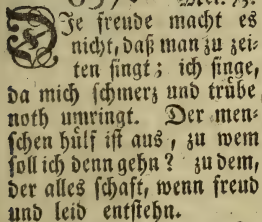 DJe freude macht es
nicht, daß man zu zei-
ten singt; ich singe,
da mich schmerz und trübe
noth umringt. Der men-
schen hülf ist aus, zu wem
soll ich denn gehn? zu dem,
der alles schaft, wenn freud
und leid entstehn.